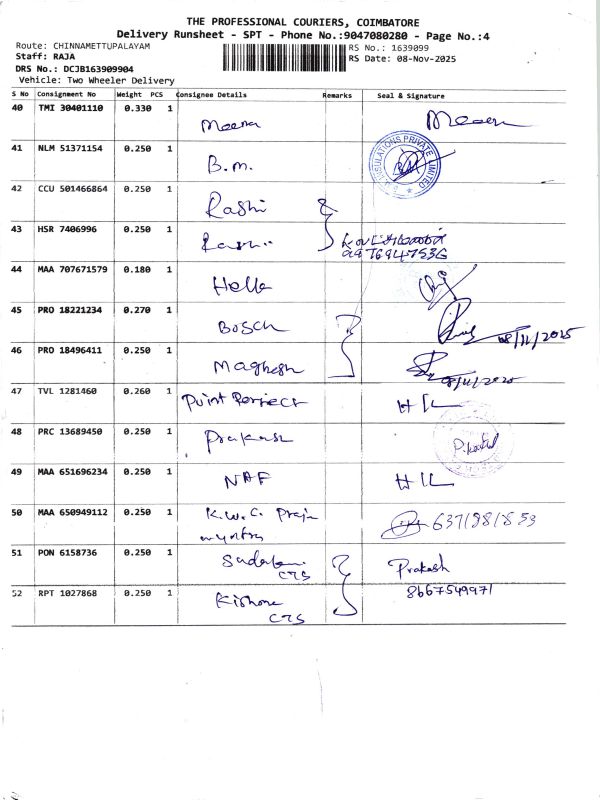 THE PROFESSIONAL COURIERS, COIMBATORE
Delivery Runsheet - SPT - Phone No.:9047080280 - Page No.:4
Route: CHINNAMETTUPALAYAM
RS No.: 1639099
Staff: RAJA
RS Date: 08-Nov-2025
DRS No.: DCJB163909904
Vehicle: Two Wheeler Delivery
S No Consignment No Weight PCS Consignee Details Remarks Seal & Signature
40 TMI 30401110 0.330 1 Meena Meena
41 NLM 51371154 0.250 1 B.m.
INSULATIONS PRIVATE LIMITED
42 CCU 501466864 0.250 1 Rashi
43 HSR 7406996 0.250 1 Rashi
44 MAA 707671579 0.180 1 Hella
45 PRO 18221234 0.270 1 Bosch 08/11/2025
46 PRO 18496411 0.250 1 Maghesh 08/11/2025
47 TVL 1281460 0.260 1 Point Perfect
48 PRC 13689450 0.250 1 Prakash
49 MAA 651696234 0.250 1 NAF
50 MAA 650949112 0.250 1 K.W.C.
51 PON 6158736 0.250 1 CTS Prakash
8667549971
52 RPT 1027868 0.250 1 Kishore
CTS